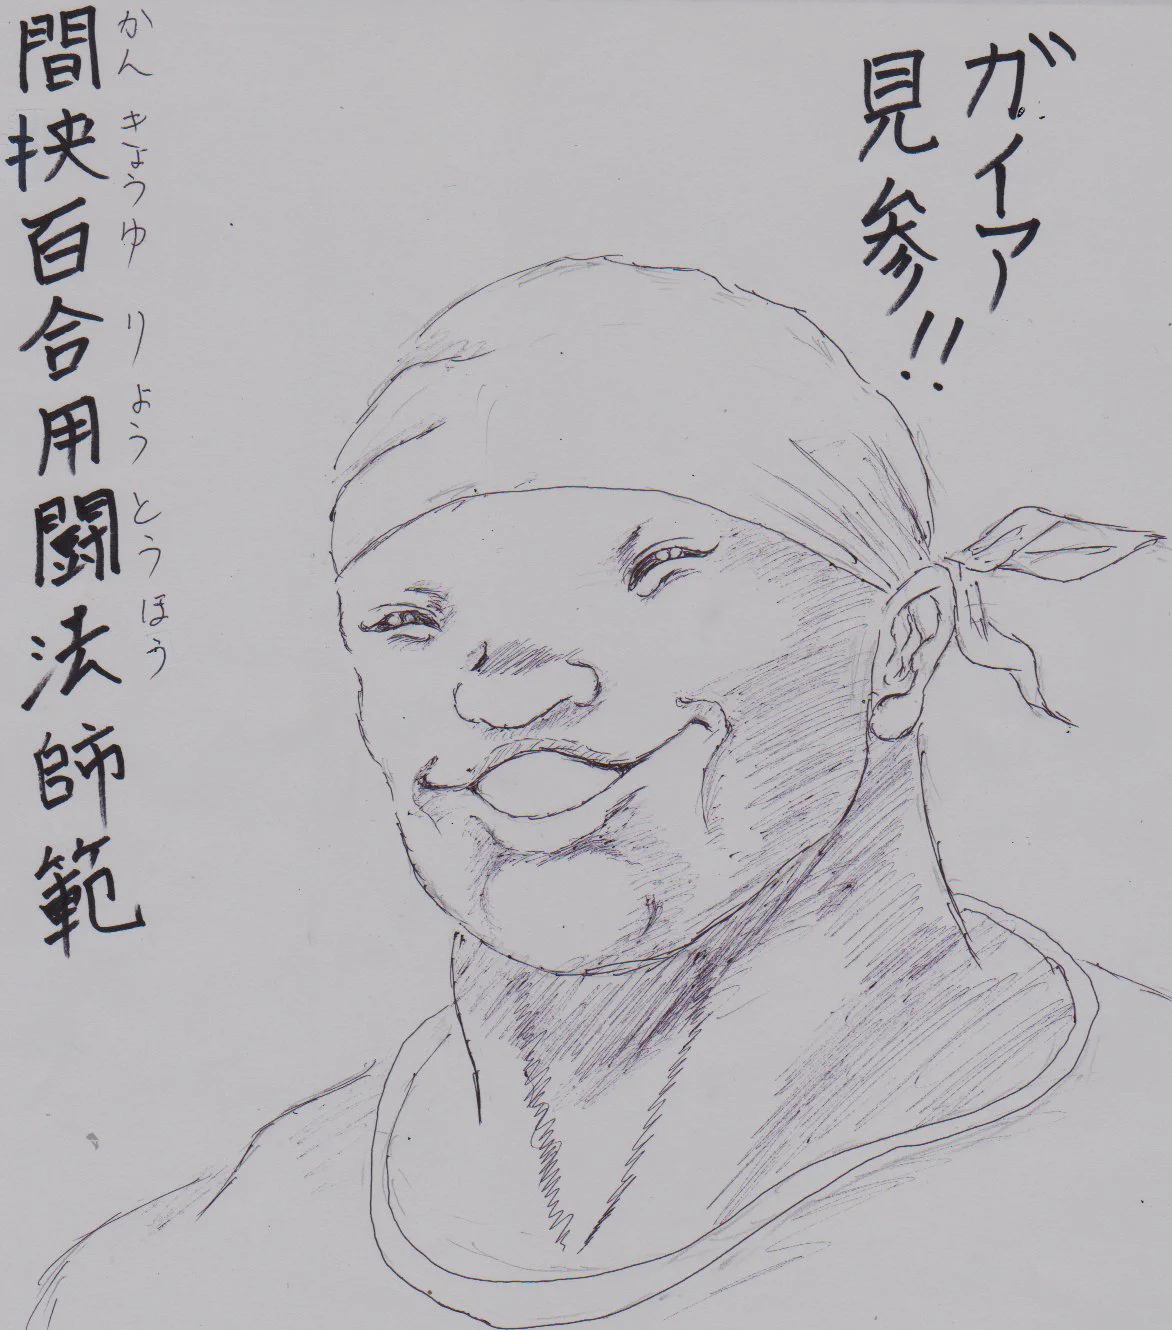 ガイア
見参!!
間挟百合用闘法師範
かんきょうゆりようとうほう